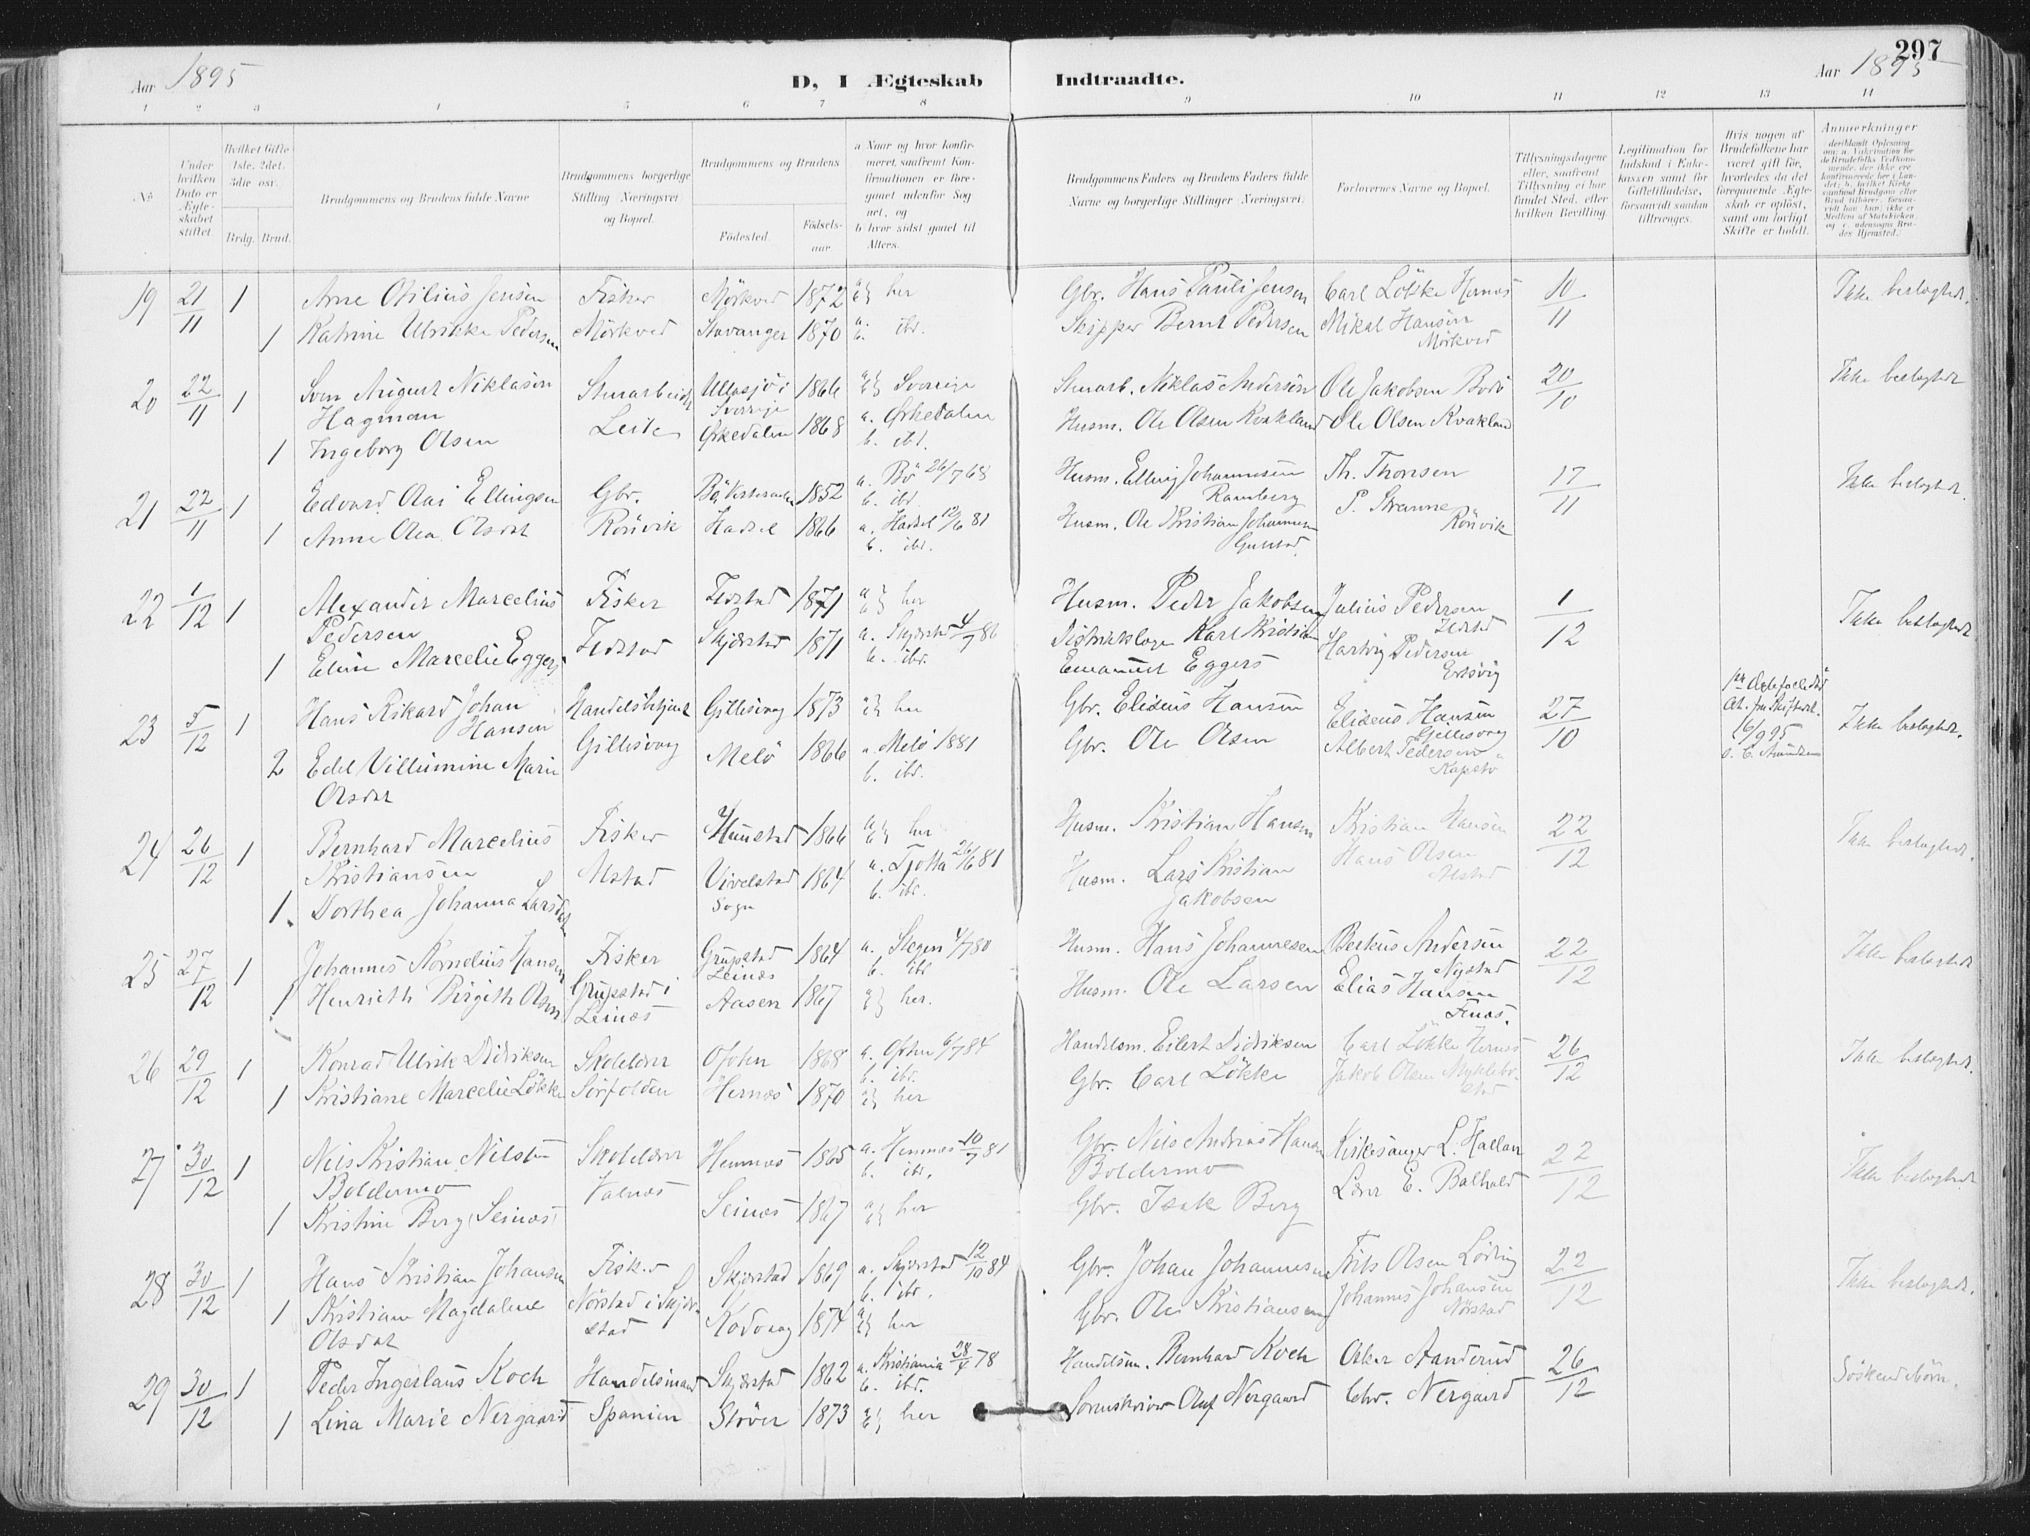 297
Aar 1895
D, I Ægteskab Indtraadte.
Aar 1895
1 2 3 4 5 6 7 8 9 10 11 12 13 14
No.
Under hvilken Dato er Ægteskabet stiftet
Hvilket Gifte 1ste, 2det, 3die osv.
Brdg. Brud.
Brudgommens og Brudens fulde Navne
Brudgommens borgerlige Stilling (Næringsvei) og Bopæl.
Brudgommens og Brudens
Fødested. Fødselsaar.
a Naar og hvor konfirmeret, saafremt Konfirmationen er foregaaet udenfor Sognet, og
b hvor sidst gaaet til Alters.
Brudgommens Faders og Brudens Faders fulde Navne og borgerlige Stillinger (Næringsvei).
Forlovernes Navne og Bopæl.
Tillysningsdagene eller, saafremt Tillysning ei har fundet Sted, efter hvilken Bevilling.
Legitimation for Indskud i Enkekassen samt for Giftetilladelse, forsaavidt saadan tiltrænges.
Hvis nogen af Brudefolkene har været gift før, hvorledes da det foregaaende Ægteskab er opløst, samt om lovligt Skifte er holdt.
Anmerkninger
19 21/11 1 Arne Otilius Jensen Fisker Mörkved 1872 a b} her Gbr. Hans Pauli Jensen Carl Lökke Hernæs 10/11 Ikke beslægtede.
1 Katrine Ulrikke Pedersen Mörkved Stavanger 1870 a. b. ibr. Skipper Bernt Pedersen Mikal Hansen Mörkved
20 22/11 1 Sven August Niklasen Hagman Stenarbeider Ullasjö i Sverrige 1866 a b} Sverrige Stenarb. Niklas Andersen Ole Jakobsen Bodö 20/10 Ikke beslægtede
1 Ingeborg Olsen Leite Orkedalen 1868 a. Orkedalen b. ibd. Husm. Ole Olsen Kvakland Ole Olsen Kvakland
21 22/11 1 Edvard Olai Ellingsen Gbr. Bö Vesteraalen 1852 a. Bö 26/7 68 b. ibd Husm. Elling Johannesen Ramberg Th. Thonsen 17/11 Ikke beslægtede.
1 Anne Olea Olsdat Rönvik Hadsel 1866 a. Hadsel 12/6 81 b. ibr. Husm. Ole Kristian Johannesen P. Strænne Rönvik
22 1/12 1 Alexander Marcelius Pedersen Fisker Fedstad 1871 a b} her Husm. Peder Jakobsen Julius Pedersen Fedstad 1/12 Ikke beslægtede
1 Elise Marcelie Eggers Fedstad Skjerstad 1871 a. Skjerstad 4/7 86 b. ibr. Distriktslæge Karl Kristian Emanuel Eggers Hartvig Pedersen Ertsvig
23 5/12 1 Hans Rikard Johan Hansen Handelsbetjent Gillesvaag 1873 a b} her Gbr. Eliseus Hansen Eliseus Hansen Gillesvaag 27/10 Ikke beslægtede.
2 Edel Villumine Marie Olsdat Gillesvaag Melö 1866 a. Melö 1881 b. ibd. Gbr. Ole Olsen Albert Pedersen Kapstö
24 26/12 1 Bernhard Marcelius Kristiansen Fisker Hunstad 1866 a b} her Husm. Kristian Hansen Kristian Hansen 22/12 Ikke beslægtede.
1 Dorthea Johanna Larsdat Alstad Vivelstad Sogn 1864 a. Tjotta 26/6 81 b. ibd. Husm. Lars Kristian Jakobsen Hans Olsen Alstad
25 27/12 1 Johannes Kornelius Hansen Fisker Grupstad Leinæs 1864 a. Stegen 4/7 80 b. ibd Husm. Hans Johannesen Berteus Andersen Nystad 22/12 Ikke beslægtede
1 Henrieth Birgith Olsen Grupstad i Leinæs Aasen 1867 a b} her. Husm. Ole Larsen Elias Hansen Finæs.
26 29/12 1 Konrad Ulrik Didriksen Skolelærer Ofoten 1868 a. Ofoten 6/7 84 b. ibr. Handelsm. Eilert Didriksen Carl Lökke Hernæs 26/12 Ikke beslægtede.
1 Kristiane Marcelie Lökke Sörfolden Hernæs 1870 a b} her Gbr. Carl Lökke Jakob Olsen Myklebostad
27 30/12 1 Nils Kristian Nilsen Boldermo Skolelærer Hemnæs 1865 a. Hemnæs 10/7 81 b. ibr. Gbr. Nils Andreas Hansen Boldermo Kirkesanger L. Hallan 22/12 Ikke beslægtede
1 Kristine Berg (Seinæs) Valnæs Seinæs 1867 a b} her Gbr. Isak Berg Lærer E. Balhald
28 30/12 1 Hans Kristian Johansen Fisker Skjerstad 1869 a. Skjerstad 12/10 84 b. ibr. Gbr. Johan Johannesen Nils Olsen Löding 22/12 Ikke beslægtede.
1 Kristiane Magdalene Olsdat Nörstad i Skjerstad Kodvaag 1874 a b} her Gbr. Ole Kristiansen Johannes Johansen Nörstad
29 30/12 1 Peder Ingerlaus Koch Handelsmand Skjerstad 1862 a. Kristiania 28/4 78 b. ibd. Handelsm. Bernhard Koch Oskar Aanderud 26/12 Söskendebörn.
1 Lina Marie Nergaard Spanien Stöver 1873 a b} her Sorenskriver Oluf Nergaard Chr. Nergaard